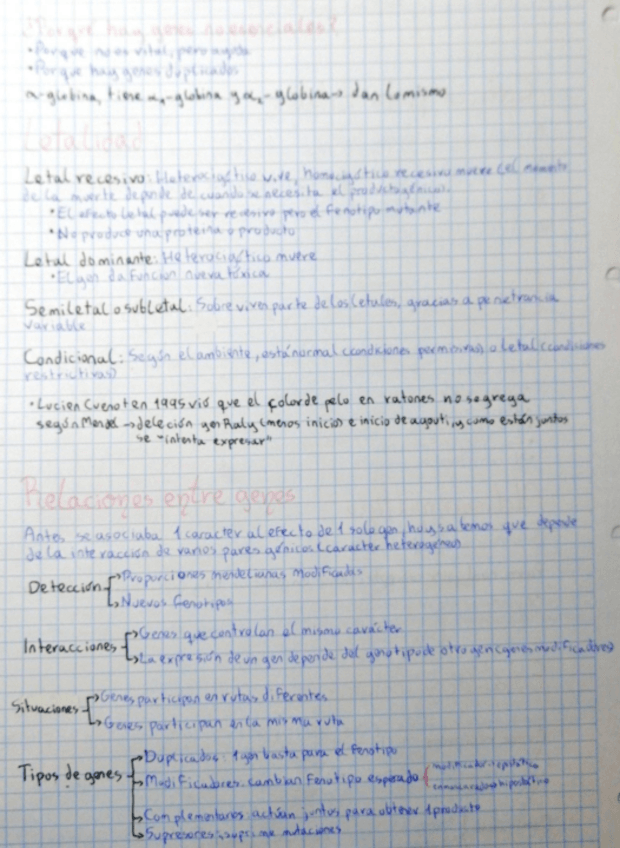 ¿Porqué hay genes no esenciales?
• Porque no es vital, pero ayuda
• Porque hay genes duplicados
α-globina, tiene α₁-globina y α₂-globina → dan lo mismo
Letalidad
Letal recesivo: Heterocigótico vive, homocigótico recesivo muere (el momento
de la muerte depende de cuando se necesita el producto génico).
• El efecto letal puede ser recesivo pero el fenotipo mutante
• No produce una proteína o producto
Letal dominante: Heterocigótico muere
• El gen da función nueva tóxica
Semiletal o subletal: Sobreviven parte de los letales, gracias a penetrancia
variable
Condicional: Según el ambiente, está normal (condiciones permisivas) o letal (condiciones
restrictivas)
• Lucien Cuenot en 1995 vió que el color de pelo en ratones no segrega
según Mendel → deleción gen Raly (menos inicio) e inicio de agouti, y como están juntos
se "intenta expresar"
Relaciones entre genes
Antes se asociaba 1 caracter al efecto de 1 solo gen, hoy sabemos que depende
de la interacción de varios pares génicos (caracter heterogéneo)
Detección → Proporciones mendelianas modificadas
→ Nuevos fenotipos
Interacciones → Genes que controlan el mismo carácter
→ La expresión de un gen depende del genotipo de otro gen (genes modificadores)
Situaciones → Genes participan en rutas diferentes
→ Genes participan en la misma ruta
Tipos de genes → Duplicados: 1 gen basta para el fenotipo
→ Modificadores: cambian fenotipo esperado { modificador: epistático
enmascarado: hipostático
→ Complementarios: actúan juntos para obtener 1 producto
→ Supresores: suprime mutaciones